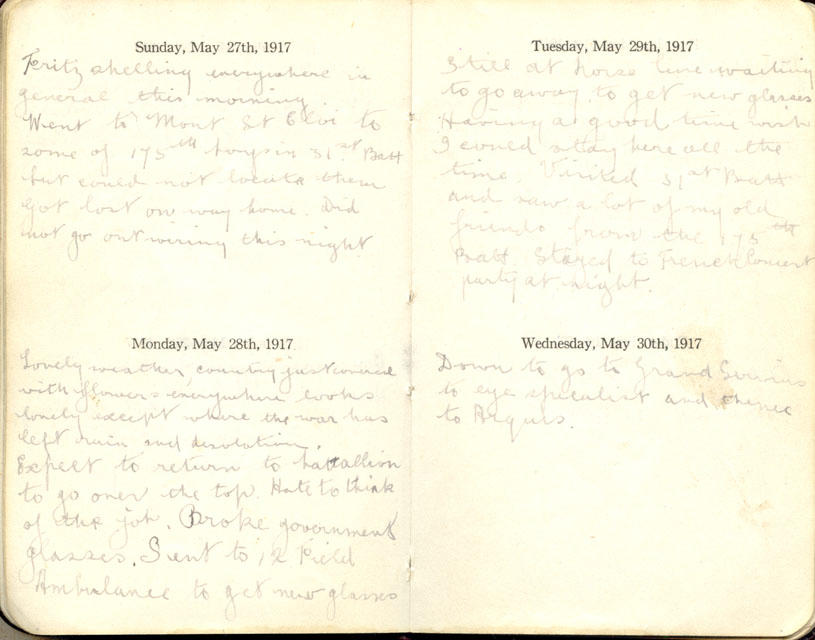 Sunday, May 27th, 1917
Fritz shelling everywhere in
general this morning.
Went to Mont St Eloi to
some of 175th boys in 31st Batt
but could not locate them
Got lost on way home. Did
not go out wiring this night
Monday, May 28th, 1917
Lovely weather, country just covered
with flowers everywhere looks
lovely except where the war has
left ruin and desolation.
Expect to return to battallion
to go over the top. Hate to think
of the job. Broke government
glasses. Sent to 12 Field
Ambulance to get new glasses
Tuesday, May 29th, 1917
Still at horse line waiting
to go away to get new glasses
Having a good time wish
I could stay here all the
time. Visited 31st Batt
and saw a lot of my old
friends from the 175th
Batt. Stayed to French Concert
party at night.
Wednesday, May 30th, 1917
Down to go to Grand Servins
to eye specalist and thence
to